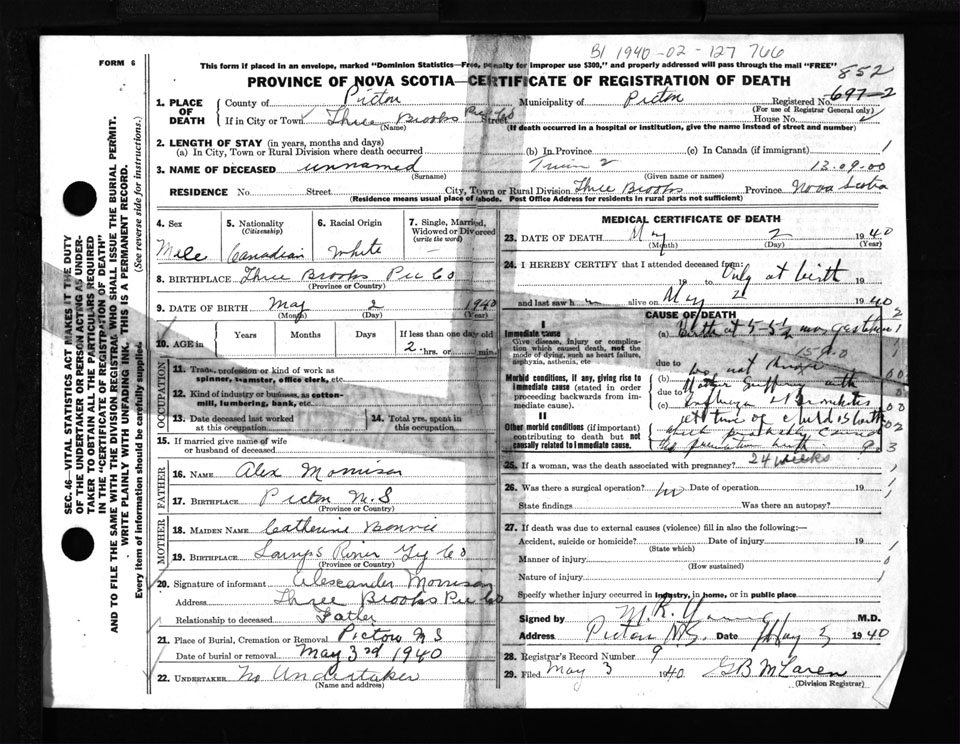 B1 1940-02-127 766
FORM 6
This form if placed in an envelope, marked "Dominion Statistics—Free, penalty for improper use $300," and properly addressed will pass through the mail "FREE"
852
PROVINCE OF NOVA SCOTIA—CERTIFICATE OF REGISTRATION OF DEATH
1. PLACE OF DEATH
County of Pictou Municipality of Pictou Registered No. 697-2
(For use of Registrar General only)
If in City or Town Three Brooks Pic Co Street House No.
(Name) (If death occurred in a hospital or institution, give the name instead of street and number)
2. LENGTH OF STAY (in years, months and days)
(a) In City, Town or Rural Division where death occurred (b) In Province (c) In Canada (if immigrant) 1
3. NAME OF DECEASED unnamed Twin 2 13.09.00
(Surname) (Given name or names)
RESIDENCE No. Street City, Town or Rural Division Three Brooks Province Nova Scotia
(Residence means usual place of abode. Post Office Address for residents in rural parts not sufficient)
4. Sex 5. Nationality (Citizenship) 6. Racial Origin 7. Single, Married, Widowed or Divorced (write the word)
Male Canadian White
8. BIRTHPLACE Three Brooks Pic Co
(Province or Country)
9. DATE OF BIRTH May 2 1940
(Month) (Day) (Year)
10. AGE in Years Months Days If less than one day old
2 hrs. or min.
OCCUPATION
11. Trade, profession or kind of work as spinner, teamster, office clerk, etc.
12. Kind of industry or business, as cotton-mill, lumbering, bank, etc.
13. Date deceased last worked at this occupation 14. Total yrs. spent in this occupation
15. If married give name of wife or husband of deceased
FATHER
16. NAME Alex Morrison
17. BIRTHPLACE Pictou N.S
(Province or Country)
MOTHER
18. MAIDEN NAME Catherine
19. BIRTHPLACE River Co
(Province or Country)
20. Signature of informant Alexander Morrison
Address Three Brooks Pic Co
Relationship to deceased Father
21. Place of Burial, Cremation or Removal Pictou N S
Date of burial or removal May 3rd 1940
22. UNDERTAKER No Undertaker
(Name and address)
MEDICAL CERTIFICATE OF DEATH
23. DATE OF DEATH May 2 1940
(Month) (Day) (Year)
24. I HEREBY CERTIFY that I attended deceased from:
Only at birth
19 to 19
and last saw h alive on May 2 1940
CAUSE OF DEATH
I
Immediate cause
Give disease, injury or complication which caused death, not the mode of dying, such as heart failure, asphyxia, asthenia, etc.
(a) Birth at 5-5½ mos gestation
due to
Morbid conditions, if any, giving rise to immediate cause (stated in order proceeding backwards from immediate cause).
(b) Mother suffering with
due to
(c)
II
Other morbid conditions (if important) contributing to death but not causally related to immediate cause.
at time of childbirth
which probably caused
the premature birth
24 weeks
25. If a woman, was the death associated with pregnancy?
26. Was there a surgical operation? no Date of operation 19
State findings Was there an autopsy?
27. If death was due to external causes (violence) fill in also the following:—
Accident, suicide or homicide? Date of injury 19
(State which)
Manner of injury
(How sustained)
Nature of injury
Specify whether injury occurred in industry, in home, or in public place
Signed by M.R. Young M.D.
Address Pictou N.S. Date May 3 1940
28. Registrar's Record Number 9
29. Filed May 3 1940 G B McLaren
(Division Registrar)
SEC. 46—VITAL STATISTICS ACT MAKES IT THE DUTY
OF THE UNDERTAKER OR PERSON ACTING AS UNDER-
TAKER TO OBTAIN ALL THE PARTICULARS REQUIRED
IN THE "CERTIFICATE OF REGISTRATION OF DEATH"
AND TO FILE THE SAME WITH THE DIVISION REGISTRAR WHO SHALL ISSUE THE BURIAL PERMIT.
WRITE PLAINLY WITH UNFADING INK. THIS IS A PERMANENT RECORD.
Every item of information should be carefully supplied. (See reverse side for instructions.)